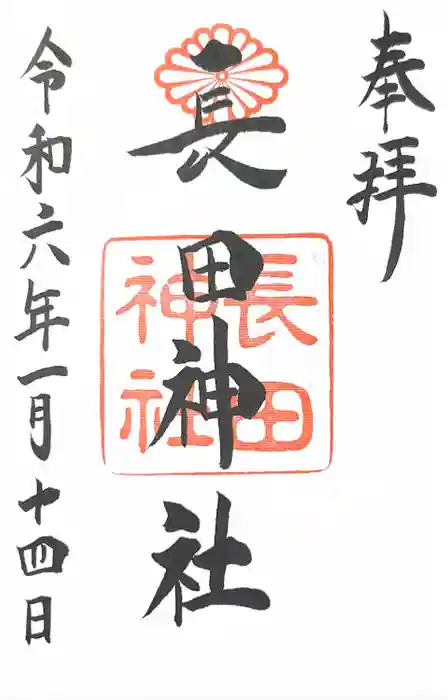 奉拝
長田神社
長田
神社
令和六年一月十四日